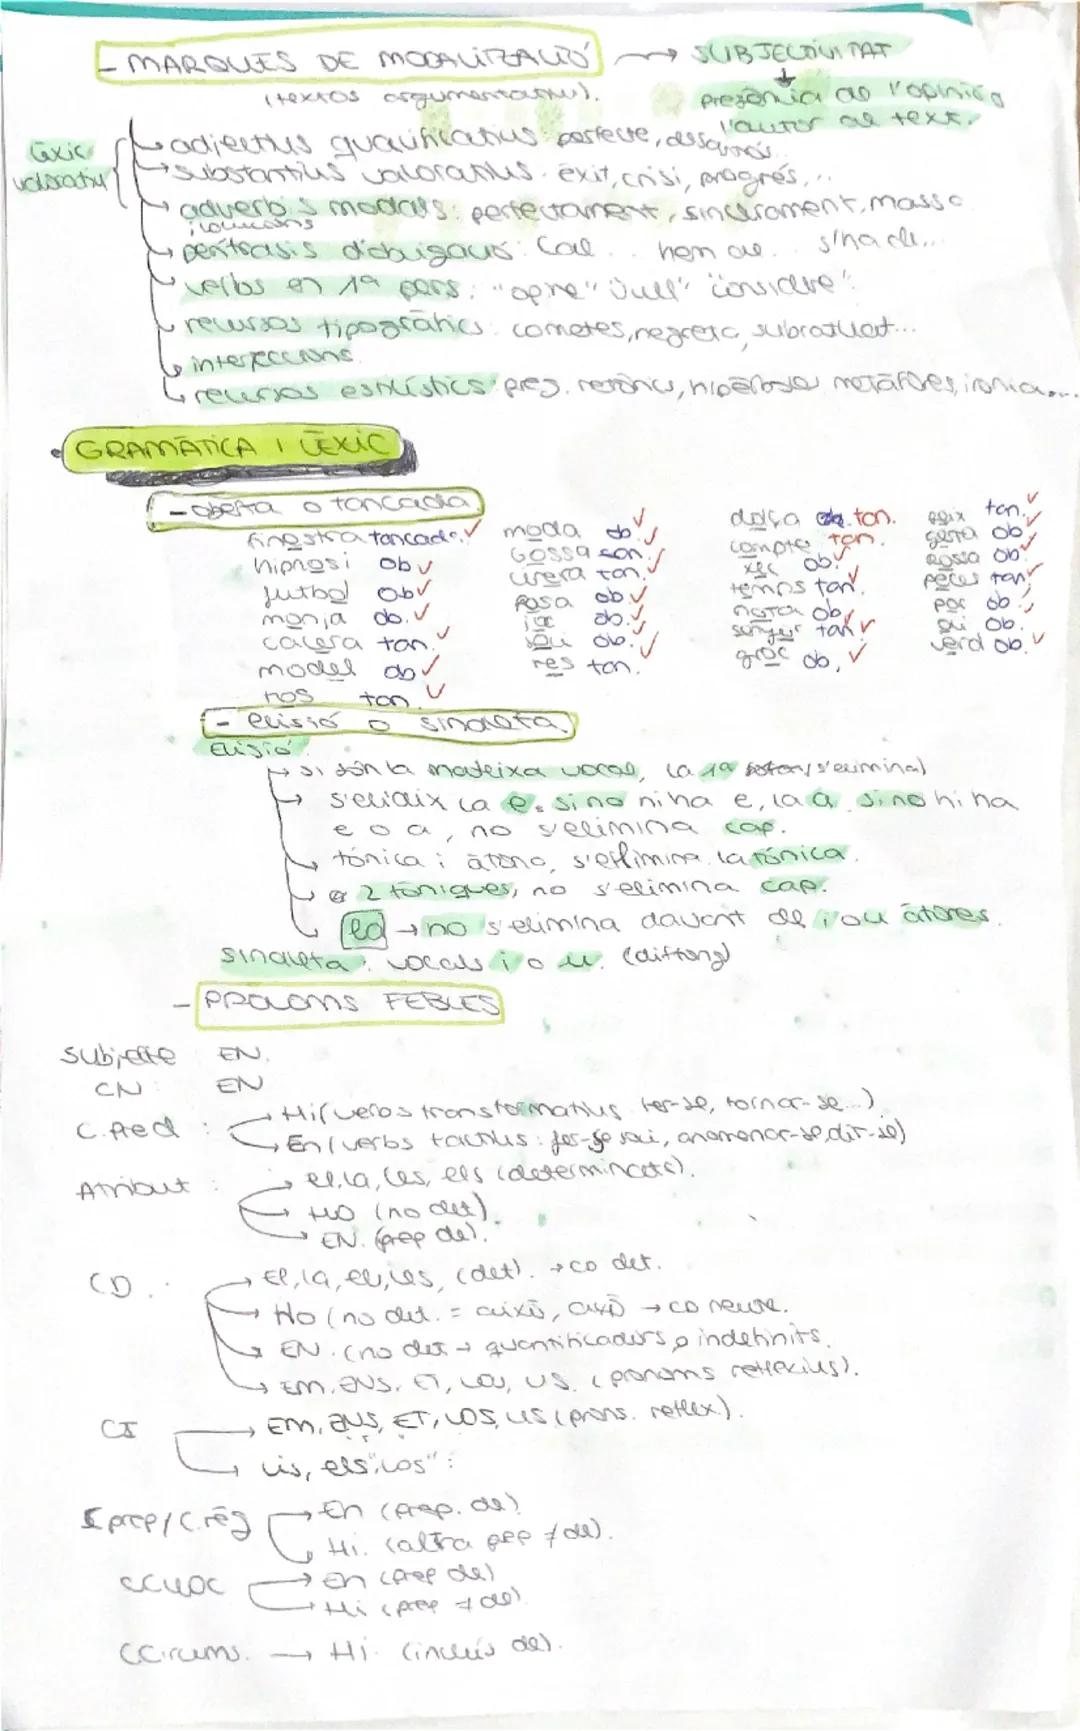 - MARQUES DE MODALITZACIÓ → SUBJECTIVITAT
(textos argumentatius).
presència de l'opinió
l'autor al text.
lèxic valoratiu
adjectius qualificatius: perfecte,
substantius valoratius. èxit, crisi, progrés,...
adverbis modals: perfectament, sincerament, massa
i locucions
perífrasis d'obligació: Cal... hem de... s'ha de...
verbs en 1ª pers: "opino" "vull" "considero".
recursos tipogràfics: cometes, negreta, subratllat...
interjeccions.
recursos estilístics: preg. retòric, hipèrbole metàfores, ironia....
GRAMÀTICA I LÈXIC
- oberta o tancada
finestra tancada.
hipnosi ob
futbol ob
monja ob.
cacera tan.
model ob
ros tan.
moda ob.
Gossa tan.
cirera tan.
Posa ob
joc ob.
sòu ob.
res ton.
dolça ton.
compte ton.
xec ob.
temps tan.
nora ob.
senyer tan
groc ob.
peix ten.
gerra ob
rossa ob.
peces tan
por ob.
ob.
verd ob.
- elisió o sinalefa
Elisió.
si són la mateixa vocal, la 1ª (s'elimina)
s'elideix la e. si no ni ha e, la a. si no hi ha
e o a, no s'elimina cap.
tònica i àtona, s'elimina la tònica.
2 tòniques, no s'elimina cap.
→ no s'elimina davant de i o u àtones.
sinalefa: vocals i o u. (diftong)
- PRONOMS FEBLES
Subjecte EN.
CN: EN
C. Pred :
Hi (verbs transformatius fer-se, tornar-se...)
En (verbs factitius: fer-se, anomenar-se, dir-se)
Atribut :
el, la, les, els (determinats).
HO (no det).
EN. (prep de).
CD.
El, la, els, les, (det). → CD det.
Ho (no det. = això, allò → CD neutre.
EN. (no det → quantificadors o indefinits.
EM, ENS, ET, LOS, US. (pronoms reflexius).
CI
EM, ENS, ET, LOS, US (prons. reflex.).
lis, els "los":
prep / C.règ
En (prep. de)
Hi. (altra prep ≠ de).
CCLLOC
En (prep de)
Hi (prep ≠ de).
CCircums. → Hi. (inclús de).